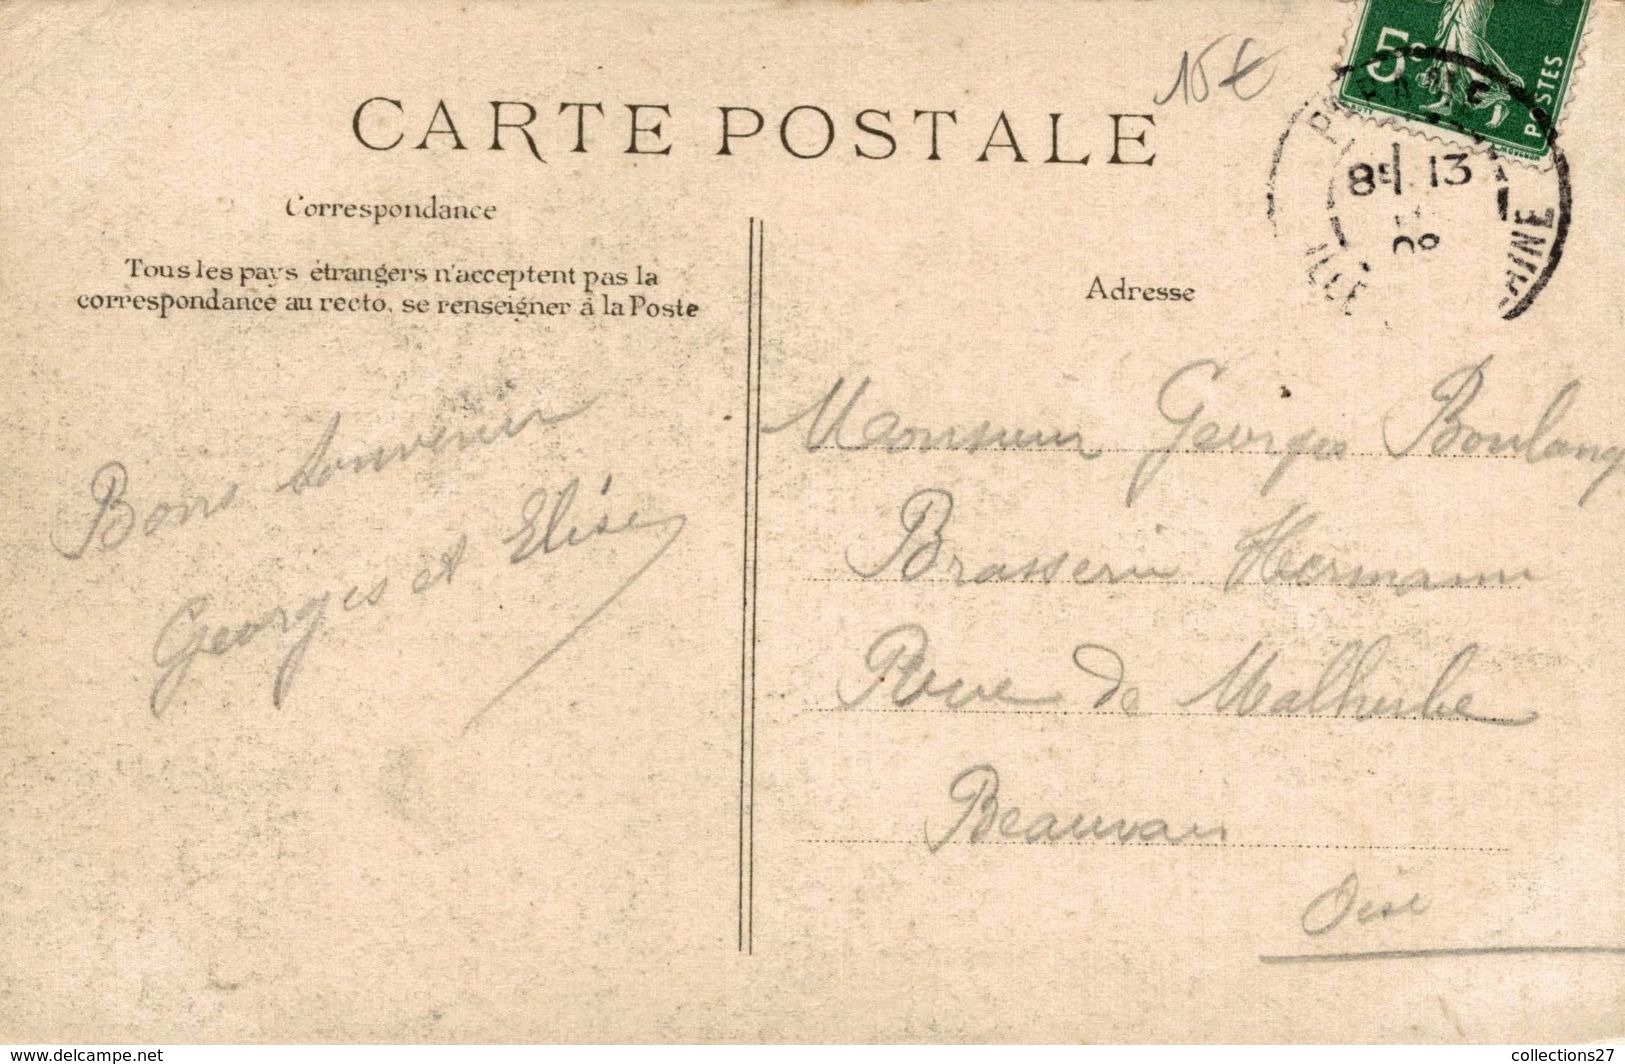 CARTE POSTALE
15€
5c
POSTES
8E 13
08
ILLE
Correspondance
Tous les pays étrangers n'acceptent pas la
correspondance au recto, se renseigner à la Poste
Adresse
Bons souvenir
Georges et Elise
Monsieur Georges Boulang
Brasserie Hermann
Rue de Malherbe
Beauvais
Oise
www.delcampe.net
collections27